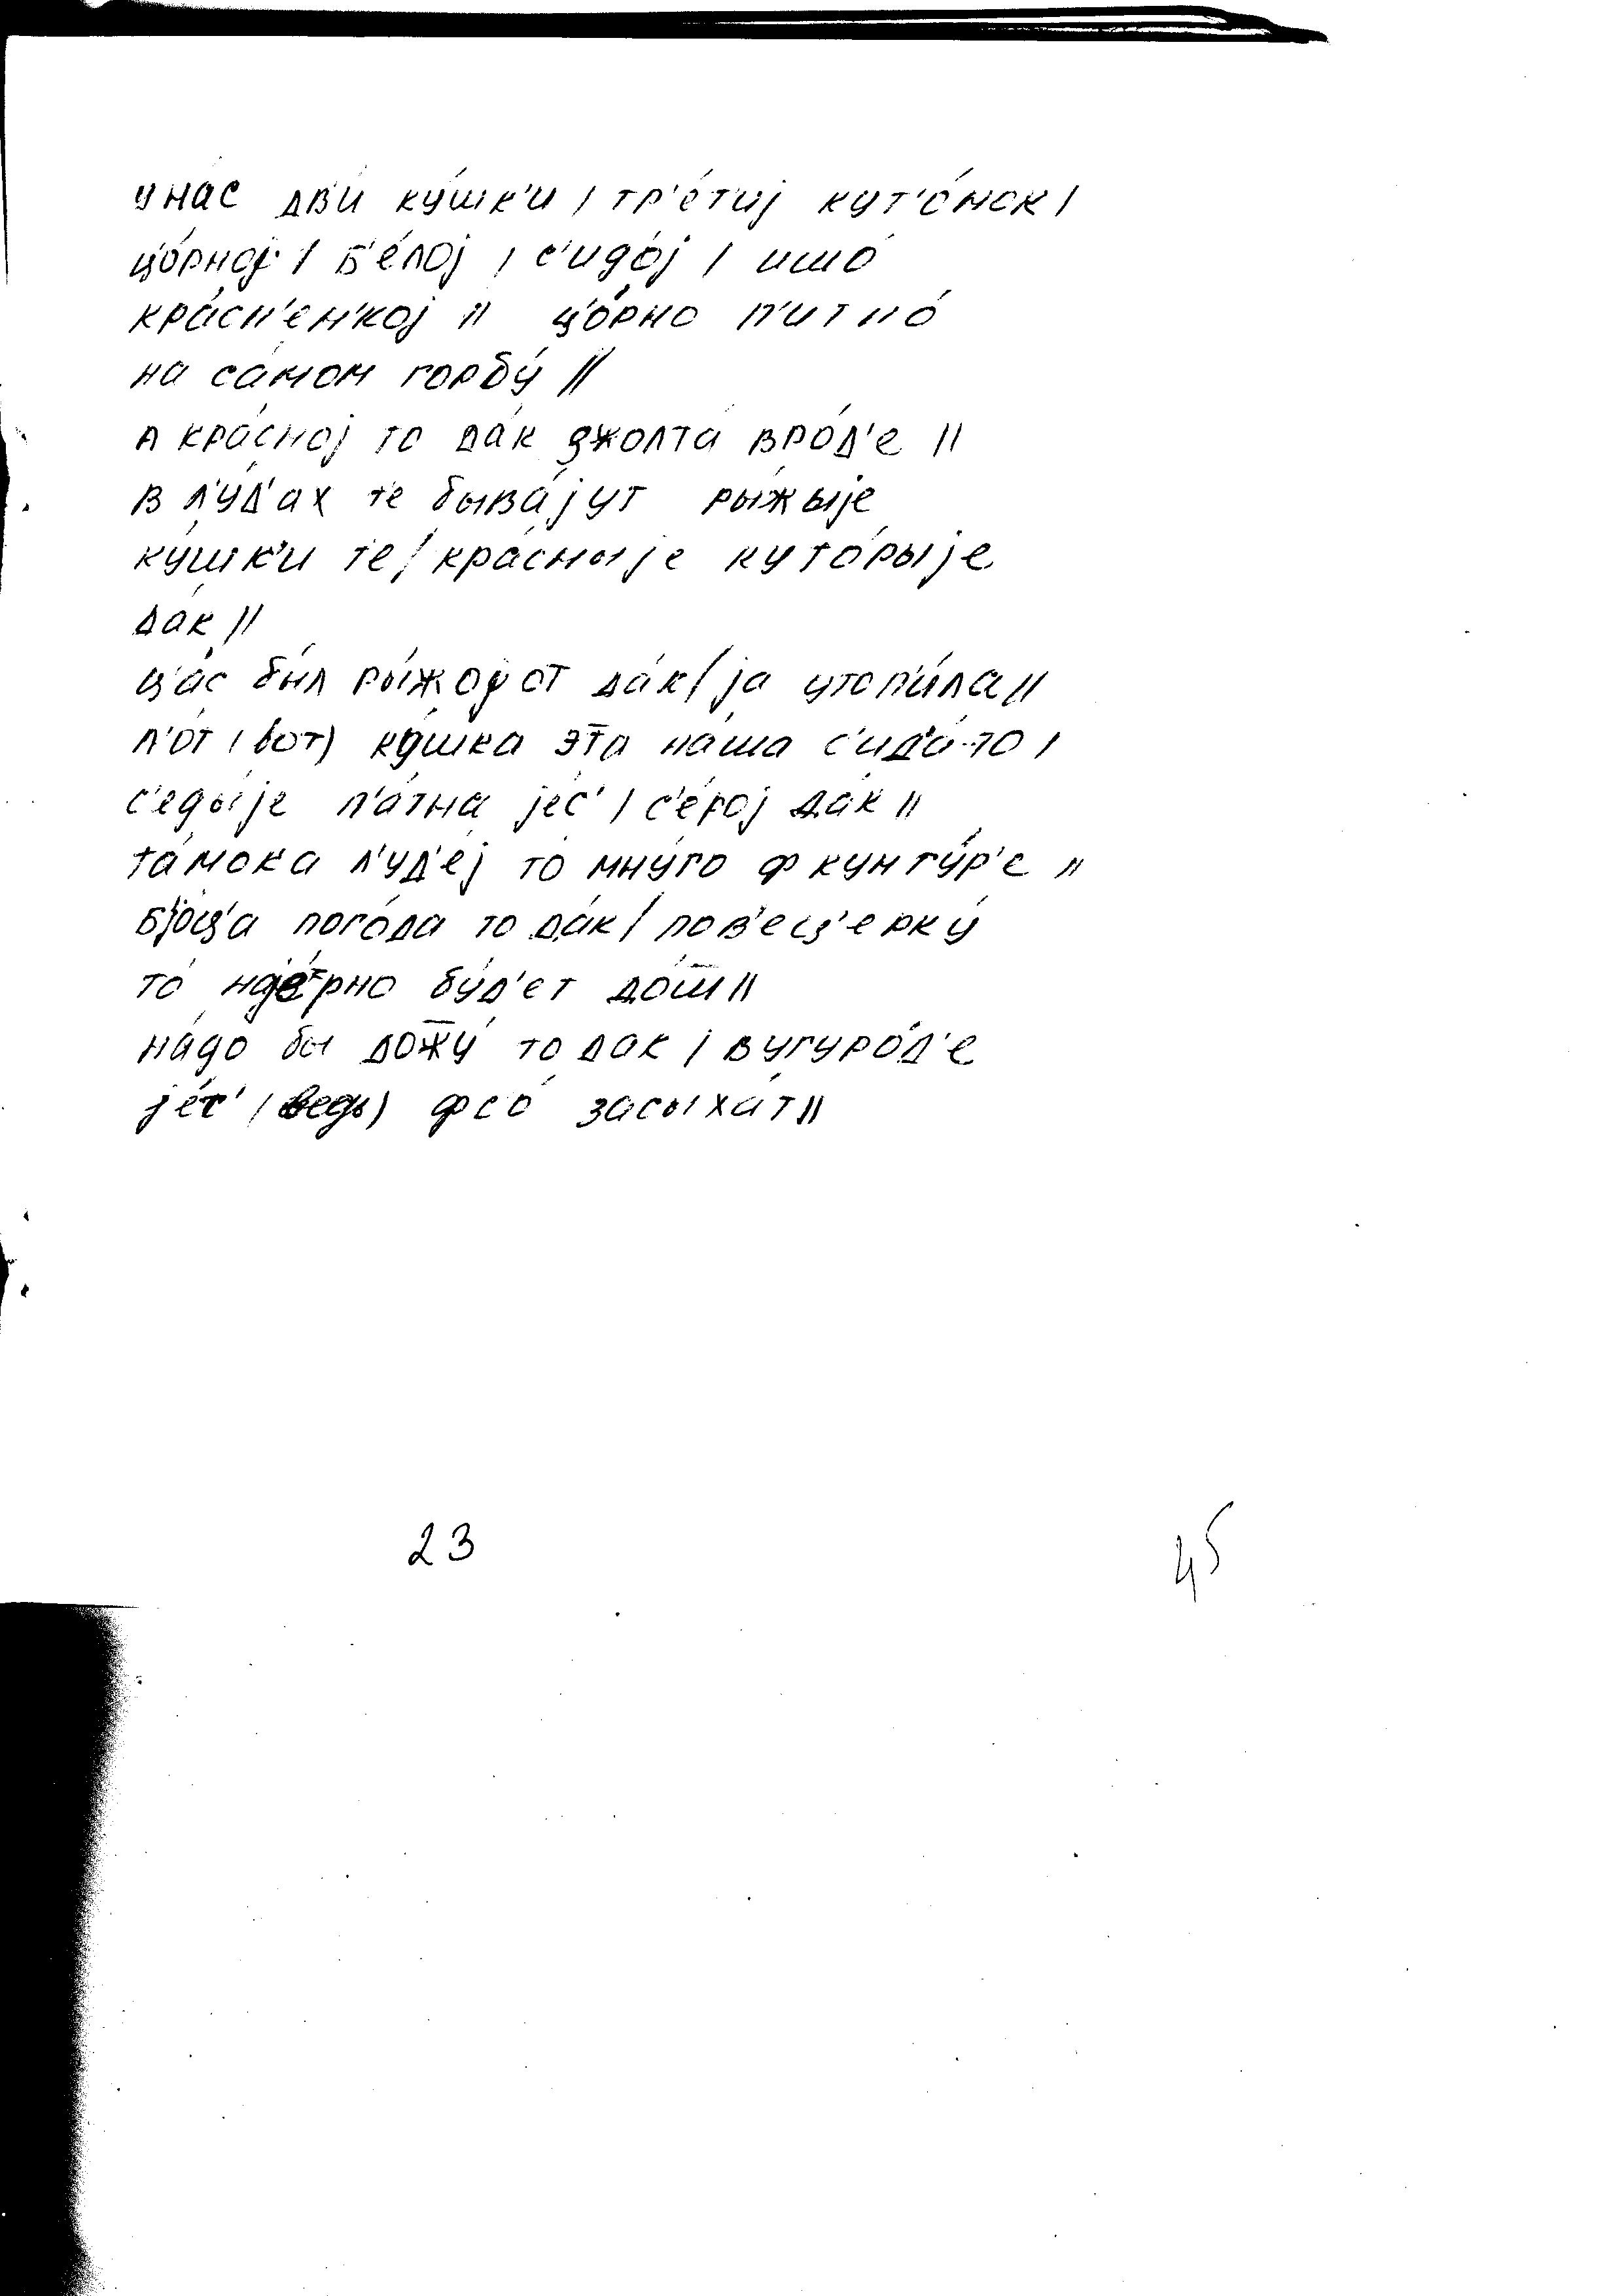 у на́с дв'и ку́шк'и / тр'е́т'иј кут'о́нок /
ц'о́рној / б'е́лој / с'идо́ј / ишо́
кра́сн'ен'кој // ц'о́рно п'итно́
на са́мом горбу́ //
а кра́сној то да́к джолта́ вро́д'е //
в л'у́д'ах т'е быва́јут ры́жыје
ку́шк'и т'е / кра́сныје куто́рыје
да́к //
ц'а́с бы́л ры́жој от да́к / ја утоп'и́ла //
л'от (вот) ку́шка э́та на́ша с'ида́-то /
с'еды́је п'а́тна јес' / с'е́рој да́к //
та́мока л'уд'е́ј то мну́го ф кунту́р'е //
пого́да то да́к / пов'ец'ерку́
то́ бу́д'ет до́ш̅ //
на́до бы дож̅у́ то дак / в угуро́д'е
је́с' (ведь) фсо́ засыха́т //
23
45